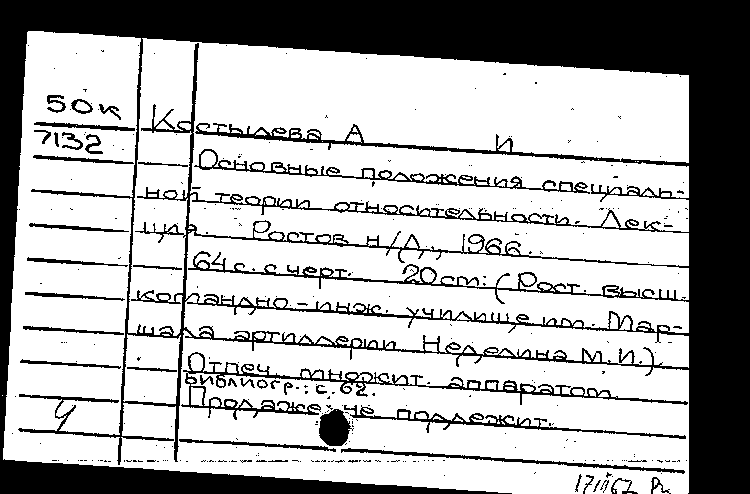 50к Костылева, А И
7132
Основные положения специаль-
ной теории относительности. Лек-
ция. Ростов н/Д., 1966.
64 с. с черт. 20 см. (Рост. высш.
командно-инж. училище им. Мар-
шала артиллерии Неделина М.И.).
Отпеч. множит. аппаратом.
Библиогр.: с. 62.
Продаже не подлежит.